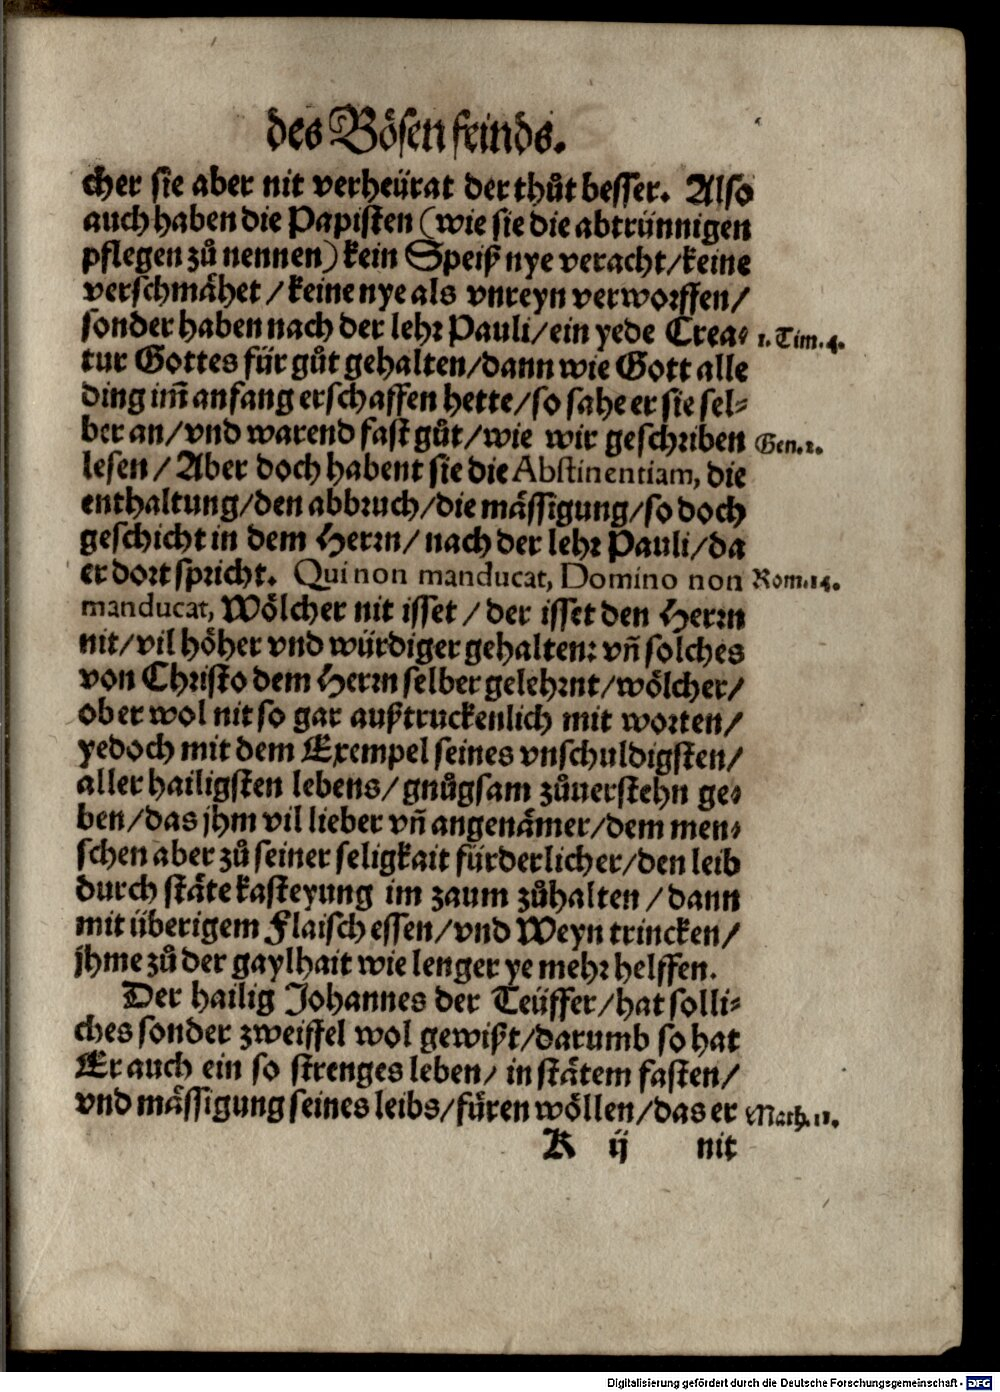 des Bösen feinds.
cher sie aber nit verheürat der thůt besser. Also
auch haben die Papisten (wie sie die abtrünnigen
pflegen zů nennen) kein Speiß nye veracht/keine
verschmähet/keine nye als vnreyn verworffen/
sonder haben nach der lehr Pauli/ein yede Crea-
1. Tim. 4.
tur Gottes für gůt gehalten/dann wie Gott alle
ding im̃ anfang erschaffen hette/so sahe er sie sel-
ber an/vnd warend fast gůt/wie wir geschriben
Gen. 1.
lesen/Aber doch habent sie die Abstinentiam, die
enthaltung/den abbruch/die mässigung/so doch
geschicht in dem Herrn/nach der lehr Pauli/da
er dort spricht. Qui non manducat, Domino non
Rom. 14.
manducat, Wölcher nit isset/der isset den Herrn
nit/vil höher vnd würdiger gehalten: vñ solches
von Christo dem Herrn selber gelehrnt/wölcher/
ob er wol nit so gar außtruckenlich mit worten/
yedoch mit dem Exempel seines vnschuldigsten/
aller hailigsten lebens/gnůgsam zůuerstehn ge-
ben/das jhm vil lieber vñ angenämer/dem men-
schen aber zů seiner seligkait fürderlicher/den leib
durch stäte kasteyung im zaum zůhalten/dann
mit überigem Flaisch essen/vnd Weyn trincken/
jhme zů der gaylhait wie lenger ye mehr helffen.
Der hailig Johannes der Teüffer/hat solli-
ches sonder zweiffel wol gewißt/darumb so hat
Er auch ein so strenges leben/in stätem fasten/
vnd mässigung seines leibs/füren wöllen/das er
Math. 11.
K ij nit
Digitalisierung gefördert durch die Deutsche Forschungsgemeinschaft - DFG